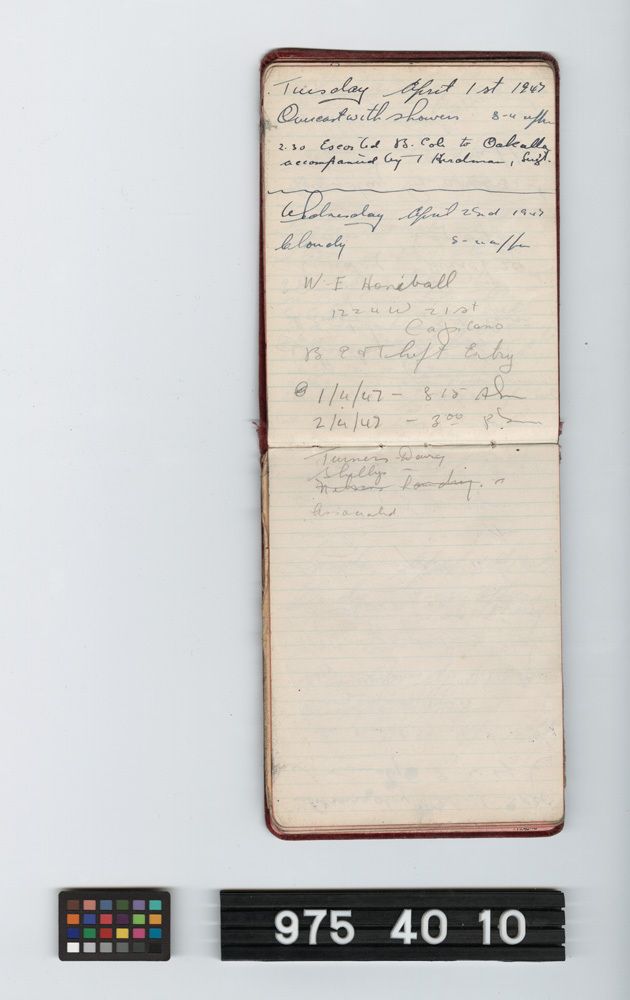 Tuesday April 1st 1947
Overcast with showers 8-4
2.30 Escorted B. Cole to Oakalla
accompanied by Hurdman,
Wednesday April 2nd 1947
Cloudy
W. E. Honeball
1224 W 21st
Capilano
B E & Theft Entry
1/4/47 - 8 15 AM
2/4/47 - 3 00 P.M
Turners Dairy
Shellys
Associated
975 40 10